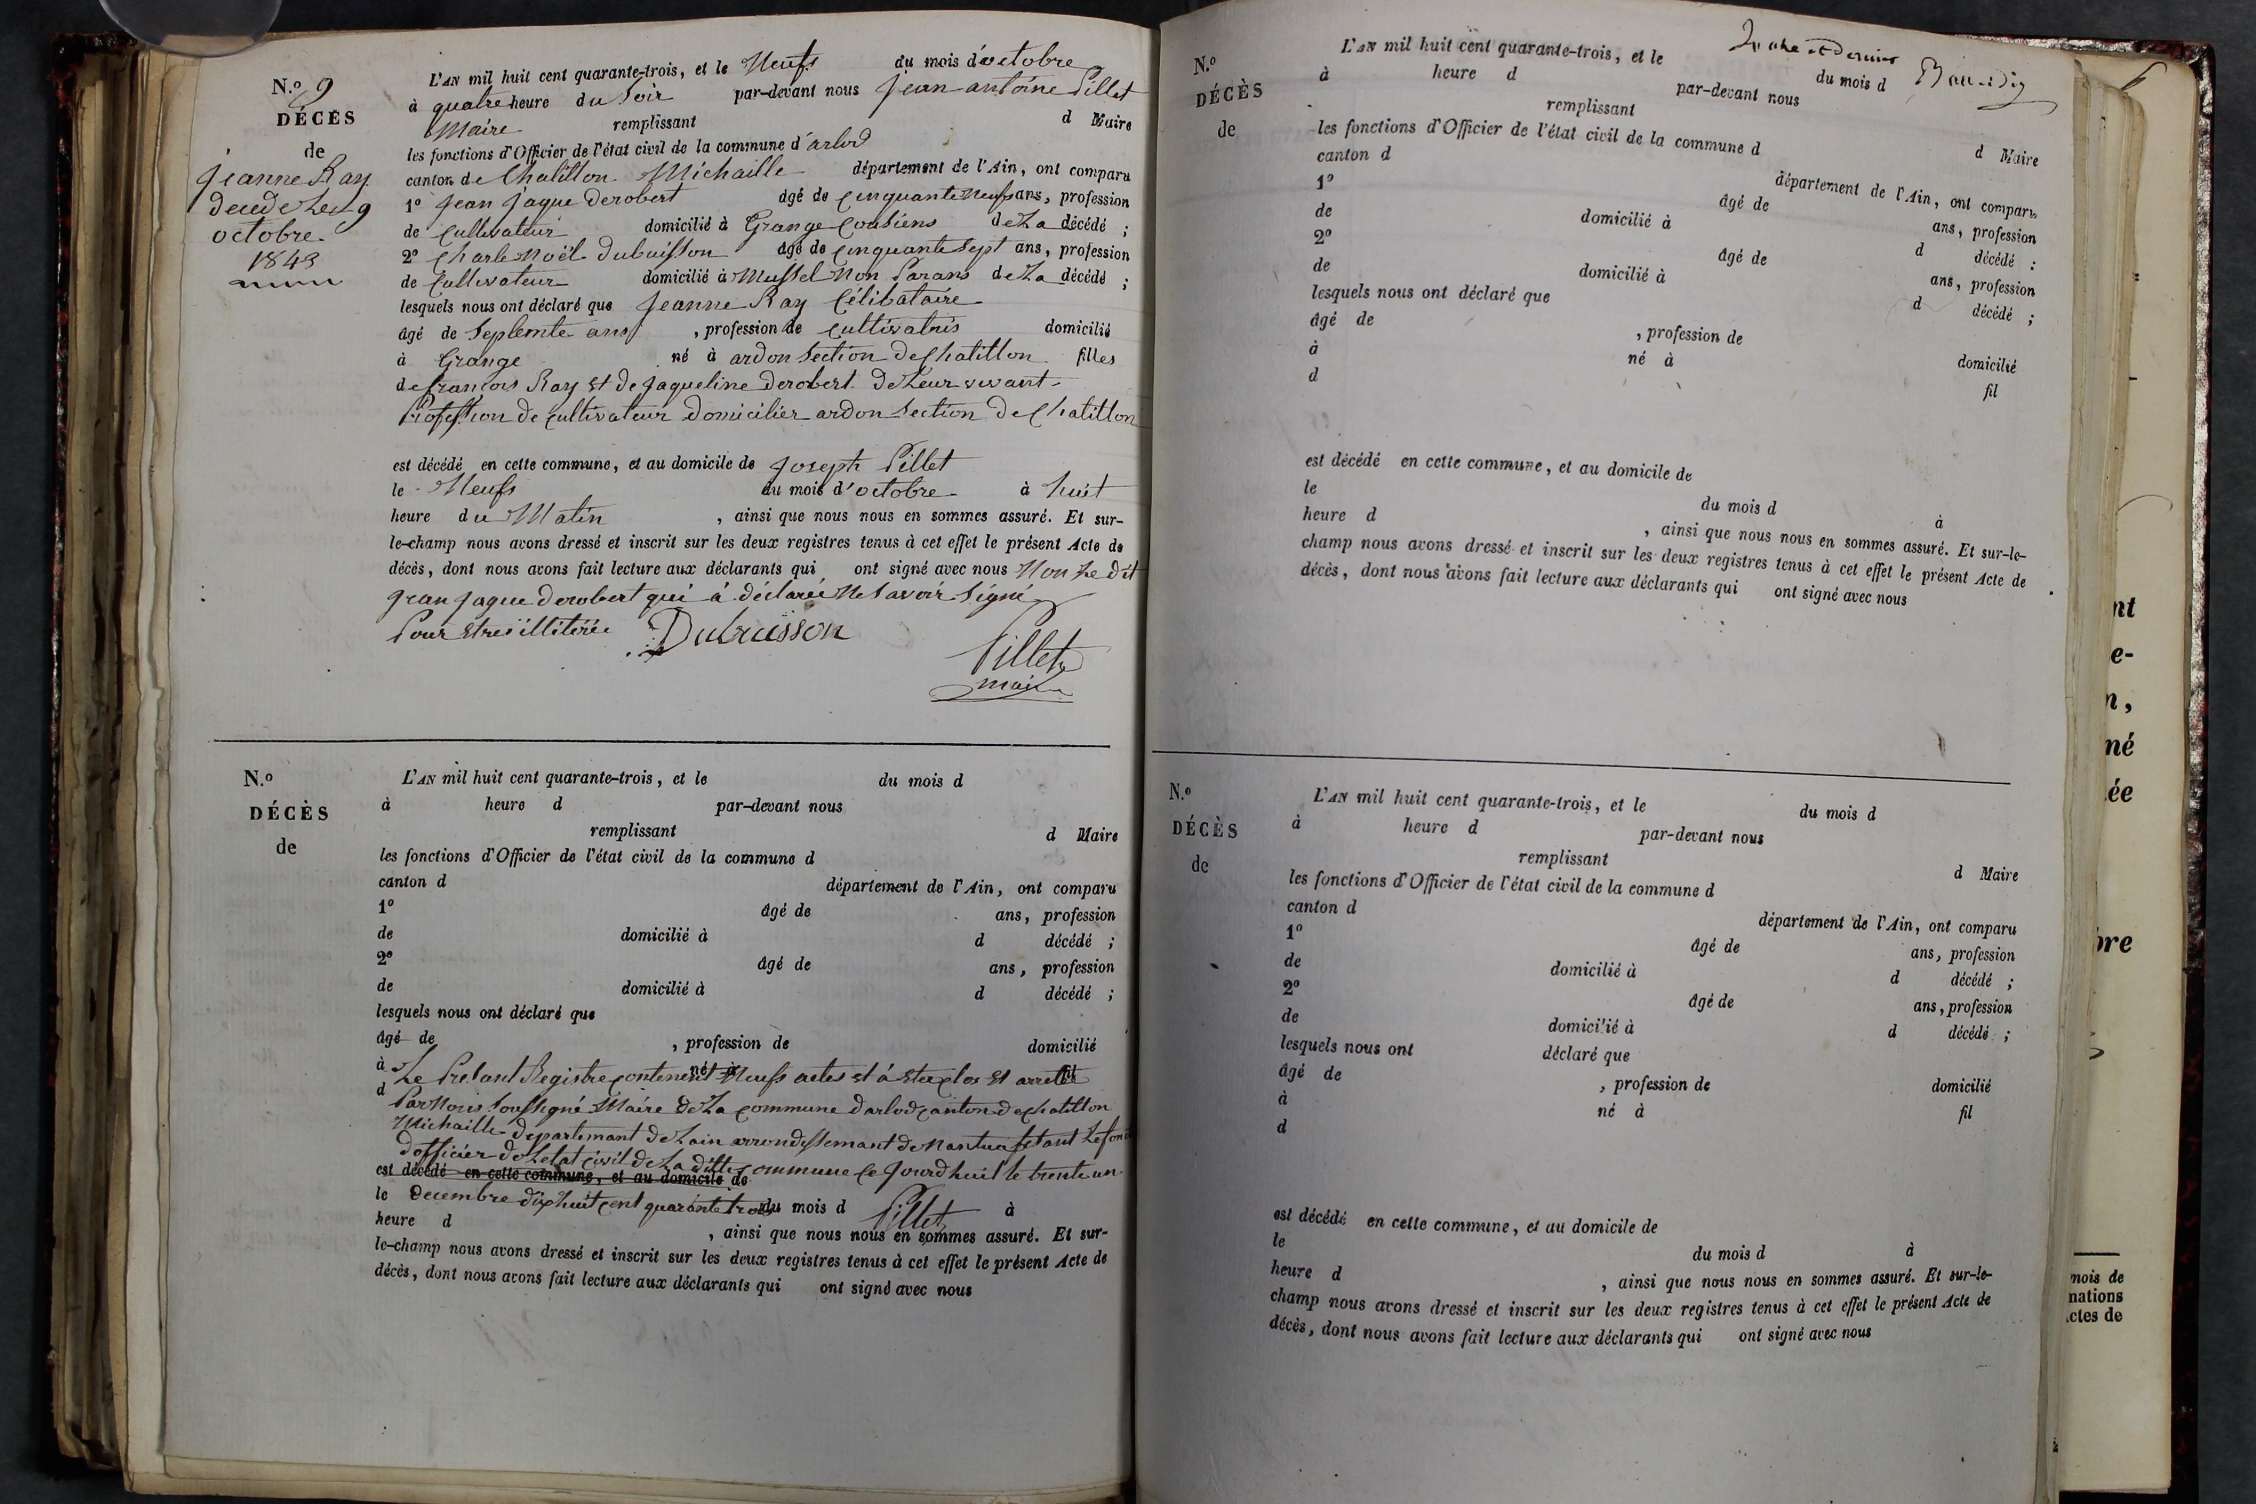 N.º 9
DÉCÈS
de
jeanne Ray
decede Le 9
octobre
1843
L'AN mil huit cent quarante-trois, et le Neufs du mois d'octobre
à quatre heure du Soir par-devant nous jean antoine Pillet
Maire remplissant d Maire
les fonctions d'Officier de l'état civil de la commune d'arlod
canton de Chatillon Michaille département de l'Ain, ont comparu
1º jean jaque Derobert âgé de cinquante neufs ans, profession
de Cultivateur domicilié à Grange Cousiens de La décédé ;
2º Charle Noël Dubuisson âgé de cinquante sept ans, profession
de Cultivateur domicilié à Mussel Non Parans de La décédé ;
lesquels nous ont déclaré que jeanne Ray Célibataire
âgé de Septente ans , profession de cultivatris domicilié
à Grange né à ardon Section de Chatillon filles
de francois Ray et de jaqueline Derobert De Leur vivant
Profession de cultivateur Domicilier ardon Section De Chatillon
est décédé en cette commune, et au domicile de joseph Pillet
le Neufs du mois d'octobre à huit
heure du Matin , ainsi que nous nous en sommes assuré. Et sur-
le-champ nous avons dressé et inscrit sur les deux registres tenus à cet effet le présent Acte de
décès, dont nous avons fait lecture aux déclarants qui ont signé avec nous Non Le dit
jean jaque Derobert qui à déclarée Ne Savoir Signé
Pour Etre illitérée Dubuisson
Pillet
maire
N.º
DÉCÈS
de
L'AN mil huit cent quarante-trois, et le du mois d
à heure d par-devant nous
remplissant d Maire
les fonctions d'Officier de l'état civil de la commune d
canton d département de l'Ain, ont comparu
1º âgé de ans, profession
de domicilié à d décédé ;
2º âgé de ans, profession
de domicilié à d décédé ;
lesquels nous ont déclaré que
âgé de , profession de domicilié
à né à fil
Le Présant Registre contenent Neufs actes et à Eté clos Et arretté
d
Par Nous Soussigné Maire De La commune Darlod canton de chatillon
Michaille departemant de Lain arrondissemant de Nantua fesant Le fonc
Dofficier De Letat civil De La ditte commune Ce jourdhuil le trente un
est décédé en cette commune, et au domicile de
le Decembre dixhuit cent quarante trois du mois d Pillet à
heure d , ainsi que nous nous en sommes assuré. Et sur-
le-champ nous avons dressé et inscrit sur les deux registres tenus à cet effet le présent Acte de
décès, dont nous avons fait lecture aux déclarants qui ont signé avec nous
et dernier
N.º
DÉCÈS
de
L'AN mil huit cent quarante-trois, et le du mois d
à heure d par-devant nous
remplissant d Maire
les fonctions d'Officier de l'état civil de la commune d
canton d département de l'Ain, ont comparu
1º âgé de ans, profession
de domicilié à d décédé :
2º âgé de ans, profession
de domicilié à d décédé ;
lesquels nous ont déclaré que
âgé de , profession de domicilié
à né à fil
d
est décédé en cette commune, et au domicile de
le du mois d à
heure d , ainsi que nous nous en sommes assuré. Et sur-le-
champ nous avons dressé et inscrit sur les deux registres tenus à cet effet le présent Acte de
décès, dont nous avons fait lecture aux déclarants qui ont signé avec nous
N.º
DÉCÈS
de
L'AN mil huit cent quarante-trois, et le du mois d
à heure d par-devant nous
remplissant d Maire
les fonctions d'Officier de l'état civil de la commune d
canton d département de l'Ain, ont comparu
1º âgé de ans, profession
de domicilié à d décédé ;
2º âgé de ans, profession
de domicilié à d décédé ;
lesquels nous ont déclaré que
âgé de , profession de domicilié
à né à fil
d
est décédé en cette commune, et au domicile de
le du mois d à
heure d , ainsi que nous nous en sommes assuré. Et sur-le-
champ nous avons dressé et inscrit sur les deux registres tenus à cet effet le présent Acte de
décès, dont nous avons fait lecture aux déclarants qui ont signé avec nous
nt
e-
n,
né
ée
bre
mois de
nations
ctes de